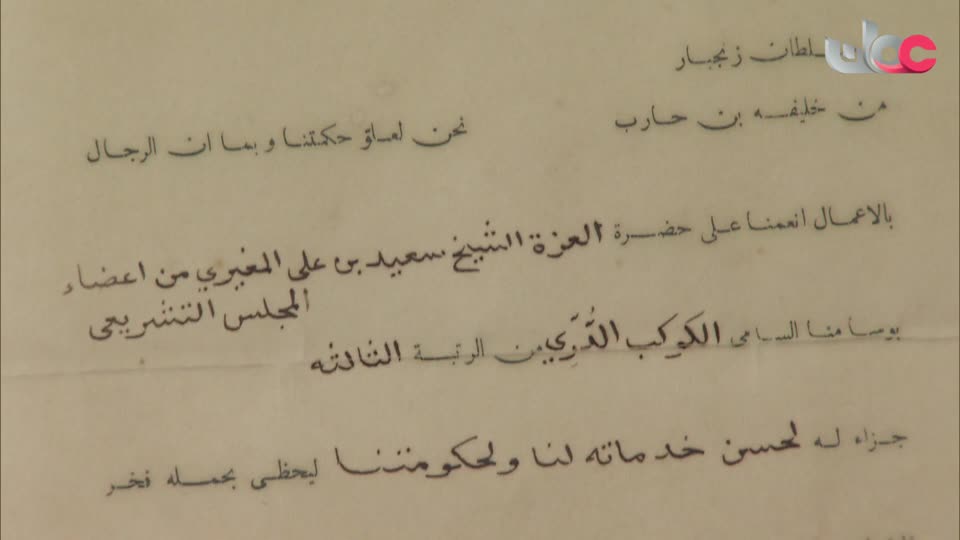 سلطان زنجبار
من خليفه بن حارب
نحن لعلؤ حكمتنا وبما ان الرجال
بالاعمال انعمنا على حضرة العزة الشيخ سعيد بن علي المغيري من اعضاء
المجلس التشريعى
بوسامنا السامى الكوكب الدُّرِّي من الرتبة الثالثه
جزاء له لحسن خدماته لنا ولحكومتنا ليحظى بحمله فخر